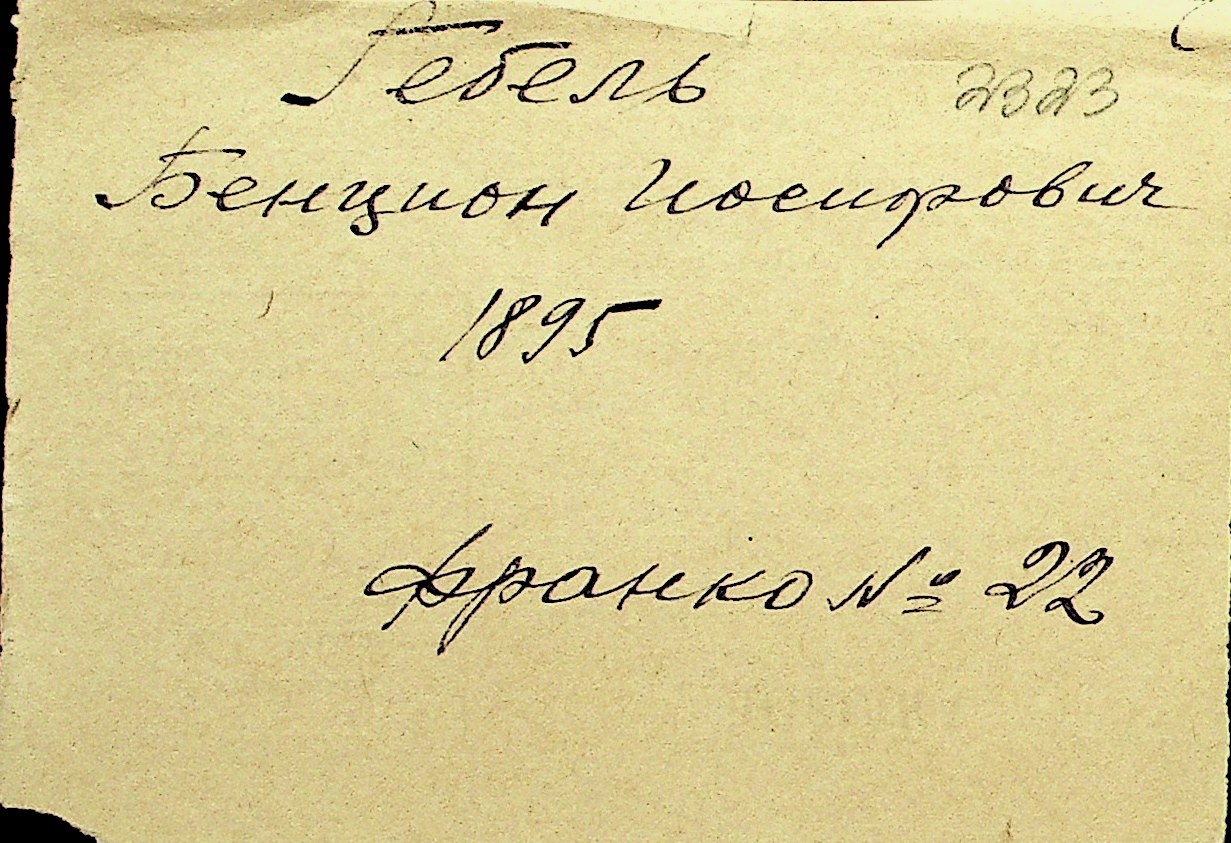 Гебель 2323
Бенцион Иосифович
1895
Франко № 22